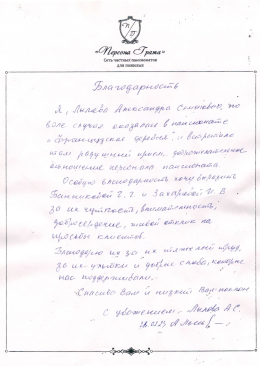 "Персона Грата"
Сеть частных пансионатов
для пожилых
Благодарность
Я, Лылова Александра Семеновна, по
воле случая оказалась в пансионате
"Французская деревня" и встретила
там радушный прием, доброжелательное
отношение персонала пансионата.
Особую благодарность хочу выразить
и Захаровой И. В.
за их чуткость, внимательность,
добросердечие, живой отклик на
просьбы клиентов.
Благодарю их за их тяжелый труд,
за их улыбки и добрые слова, которые
нас поддерживали.
Спасибо Вам и низкий Вам поклон
С уважением Лылова А.С.